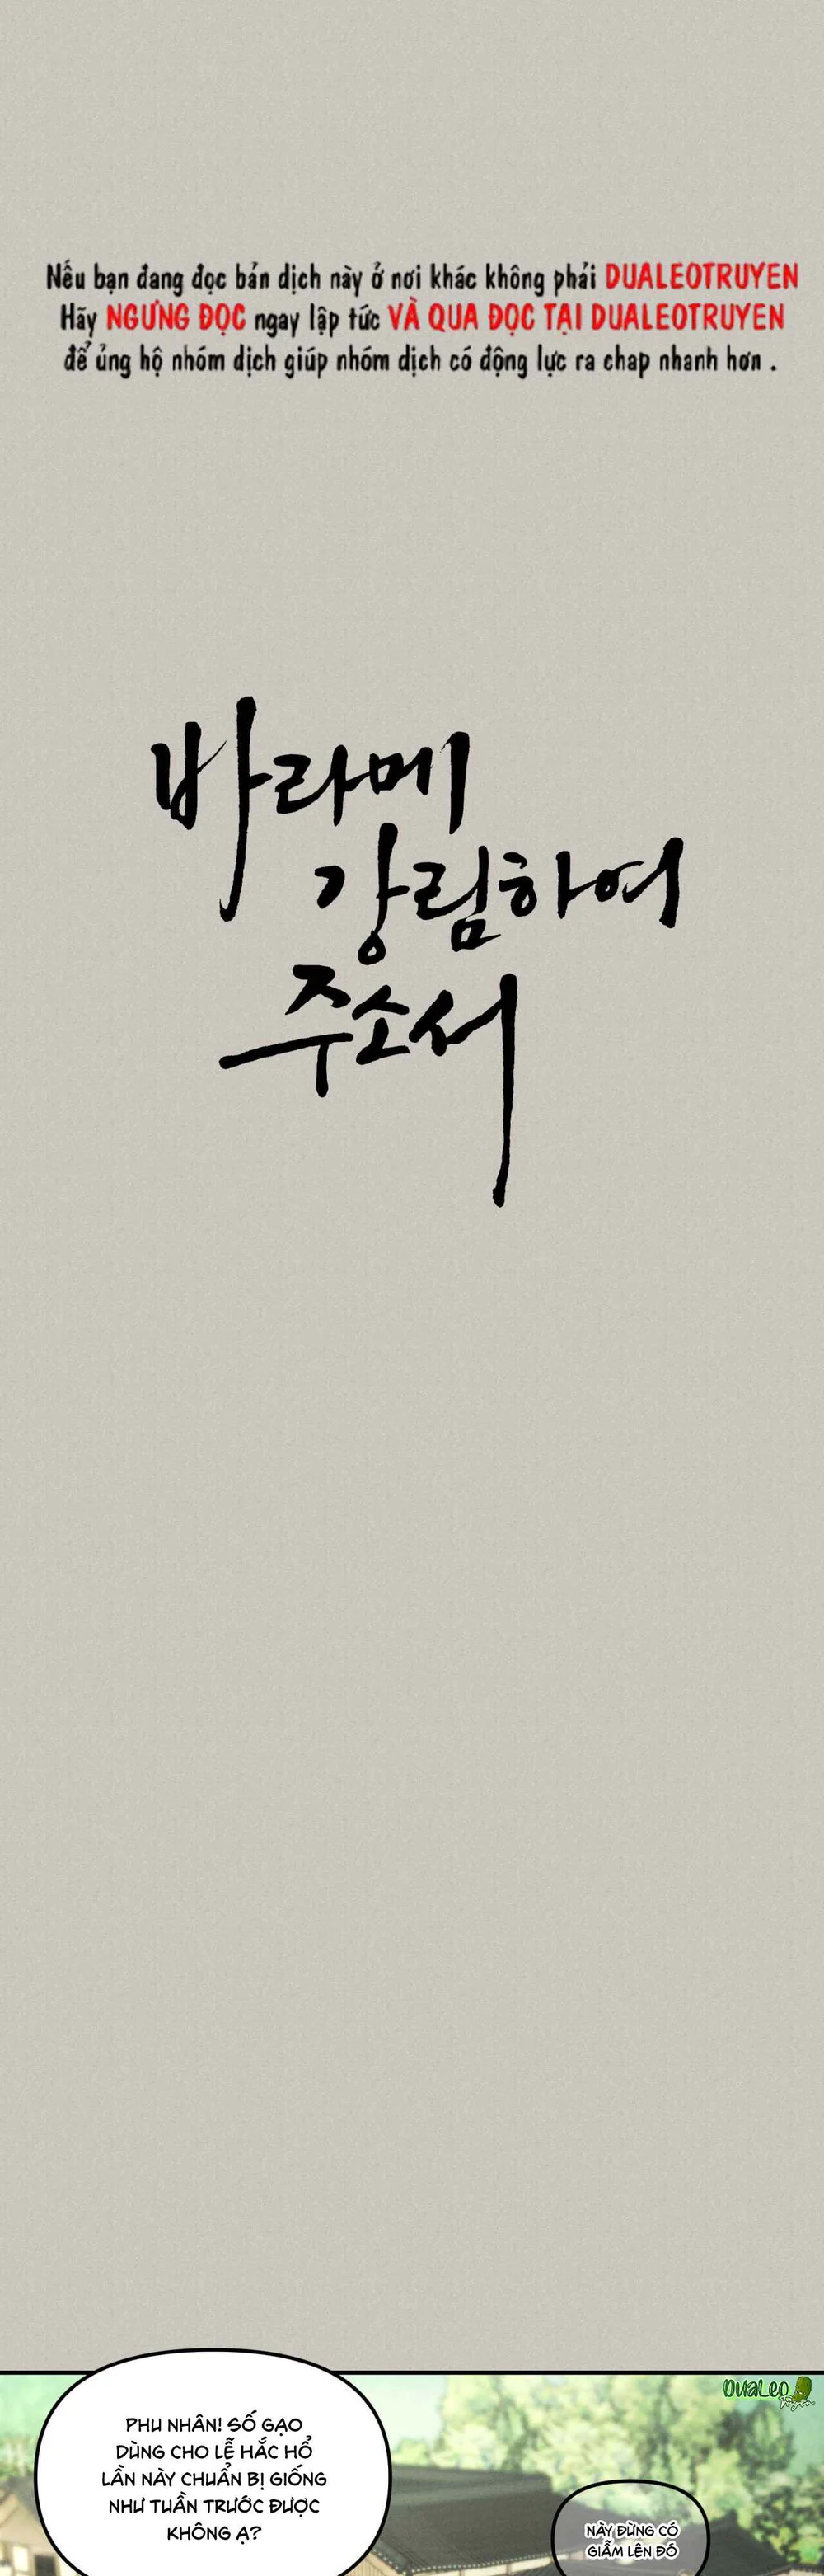 Nếu bạn đang đọc bản dịch này ở nơi khác không phải DUALEOTRUYEN
Hãy NGƯNG ĐỌC ngay lập tức VÀ QUA ĐỌC TẠI DUALEOTRUYEN
để ủng hộ nhóm dịch giúp nhóm dịch có động lực ra chap nhanh hơn .
바라메
강림하여
주소서
DuaLeo
Truyện
PHU NHÂN! SỐ GẠO
DÙNG CHO LỄ HẮC HỔ
LẦN NÀY CHUẨN BỊ GIỐNG
NHƯ TUẦN TRƯỚC ĐƯỢC
KHÔNG Ạ?
NÀY ĐỪNG CÓ
GIẪM LÊN ĐÓ